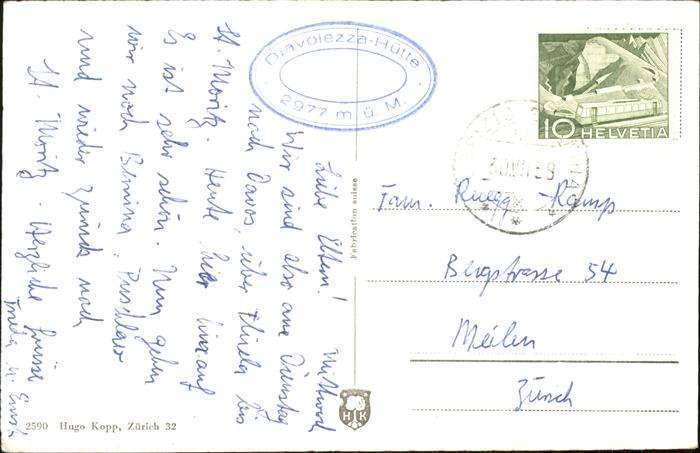 Diavolezza-Hütte
2977 m ü. M.
10 HELVETIA
Liebe Eltern! Mittwoch
Wir sind also am Dienstag
nach Davos, über Flüela bis
St. Moritz. Heute hier hinauf
Es ist sehr schön. Nun gehen
wir noch Bernina, Puschlav
und wieder zurück nach
St. Moritz. Herzliche Grüsse
Fam. Ruegg-Kamp
Bergstrasse 54
Meilen
Zürich
Fabrication suisse
HK
2590 Hugo Kopp, Zürich 32